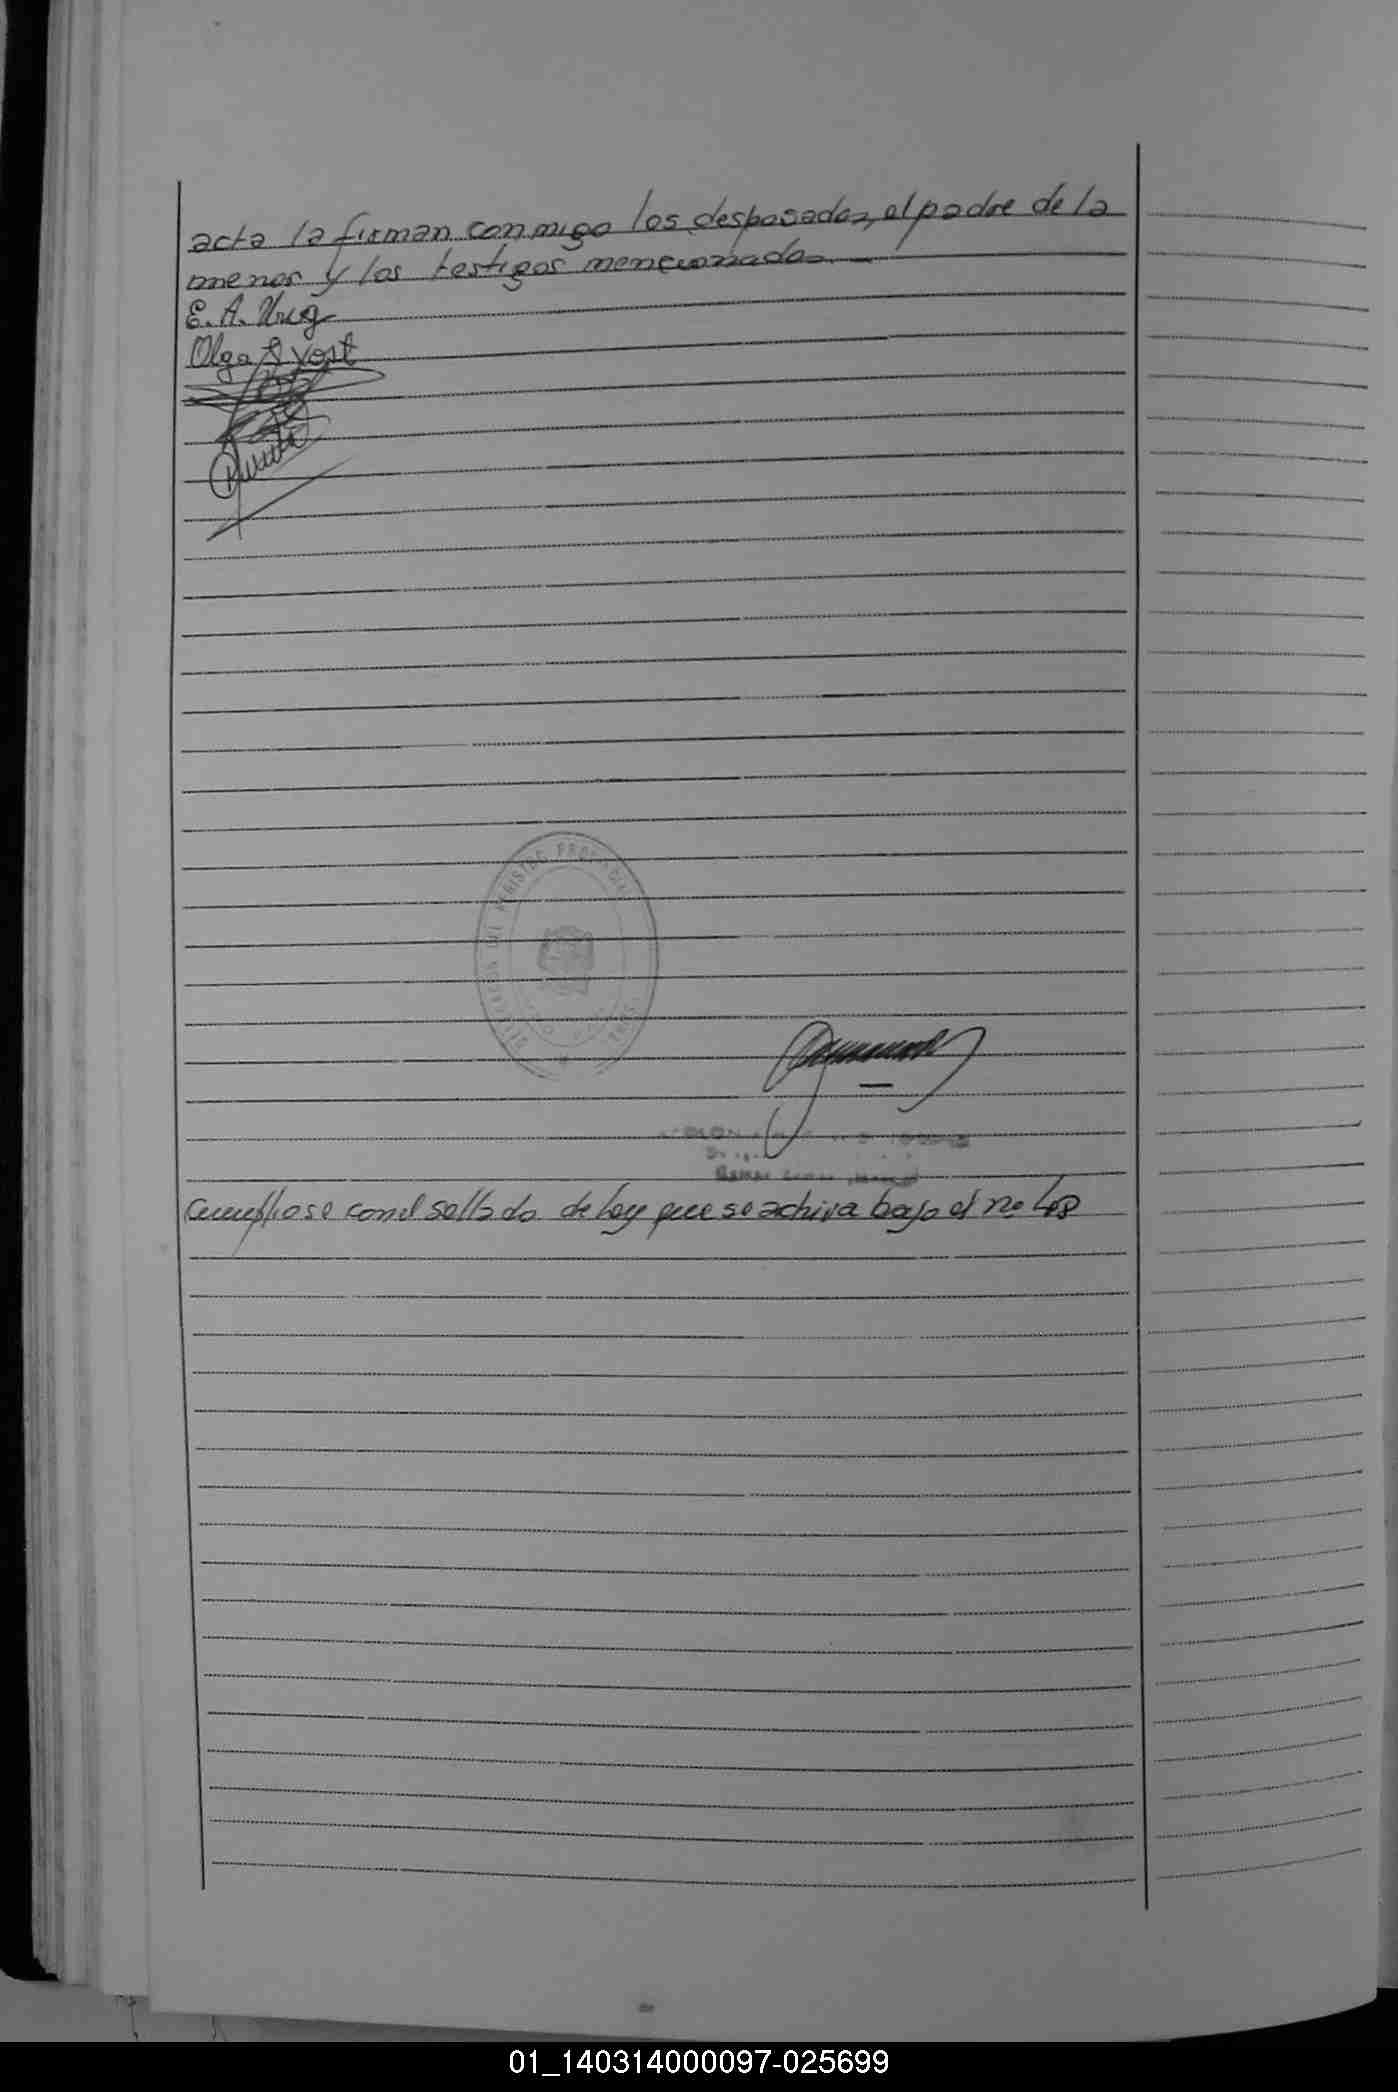 acta la firman conmigo los desposados, el padre de la
menor y los testigos mencionados.
E. A. Krug
Olga S Yost
DEL REGISTRO PROVINCIAL
Cumpliose con el sellado de ley que se achiva bajo el no 48
01_140314000097-025699